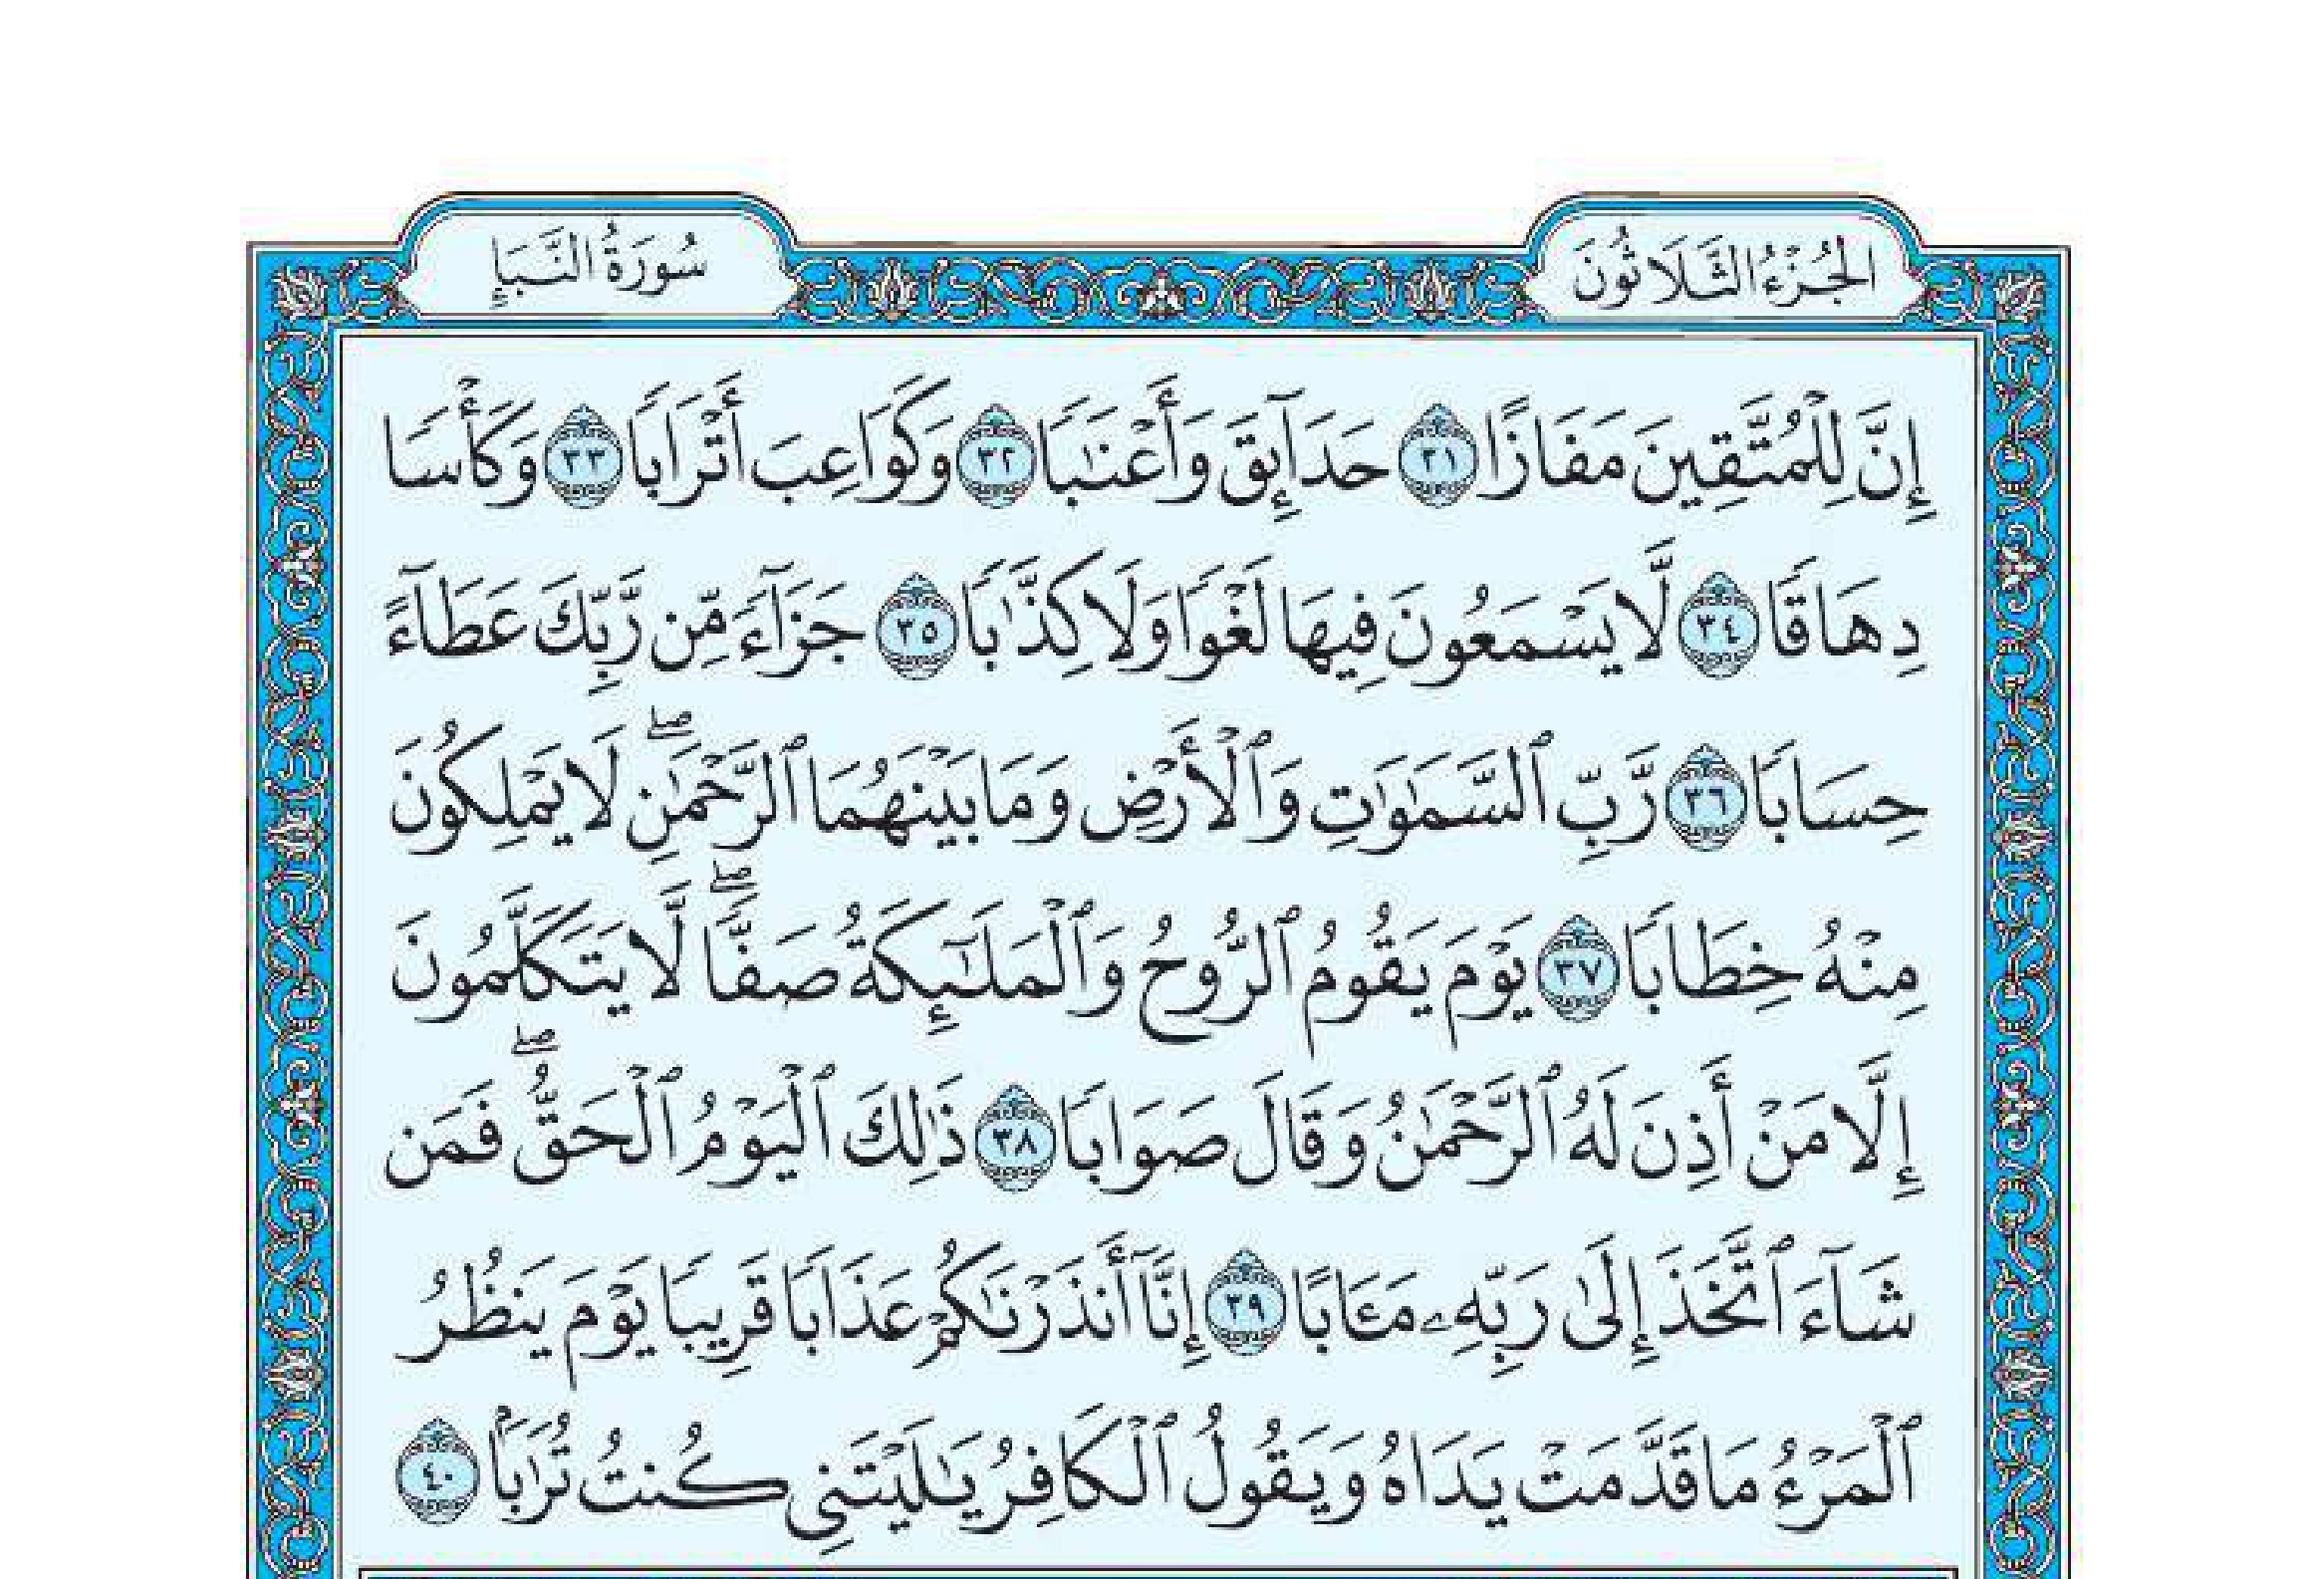 الجُزْءُ الثَّلَاثُونَ
سُورَةُ النَّبَإِ
إِنَّ لِلْمُتَّقِينَ مَفَازًا ٣١ حَدَآئِقَ وَأَعْنَٰبًا ٣٢ وَكَوَاعِبَ أَتْرَابًا ٣٣ وَكَأْسًا
دِهَاقًا ٣٤ لَّا يَسْمَعُونَ فِيهَا لَغْوًا وَلَا كِذَّٰبًا ٣٥ جَزَآءً مِّن رَّبِّكَ عَطَآءً
حِسَابًا ٣٦ رَّبِّ ٱلسَّمَٰوَٰتِ وَٱلْأَرْضِ وَمَا بَيْنَهُمَا ٱلرَّحْمَٰنِ ۖ لَا يَمْلِكُونَ
مِنْهُ خِطَابًا ٣٧ يَوْمَ يَقُومُ ٱلرُّوحُ وَٱلْمَلَٰٓئِكَةُ صَفًّا ۖ لَّا يَتَكَلَّمُونَ
إِلَّا مَنْ أَذِنَ لَهُ ٱلرَّحْمَٰنُ وَقَالَ صَوَابًا ٣٨ ذَٰلِكَ ٱلْيَوْمُ ٱلْحَقُّ ۖ فَمَن
شَآءَ ٱتَّخَذَ إِلَىٰ رَبِّهِۦ مَـَٔابًا ٣٩ إِنَّآ أَنذَرْنَٰكُمْ عَذَابًا قَرِيبًا يَوْمَ يَنظُرُ
ٱلْمَرْءُ مَا قَدَّمَتْ يَدَاهُ وَيَقُولُ ٱلْكَافِرُ يَٰلَيْتَنِى كُنتُ تُرَٰبًۢا ٤٠